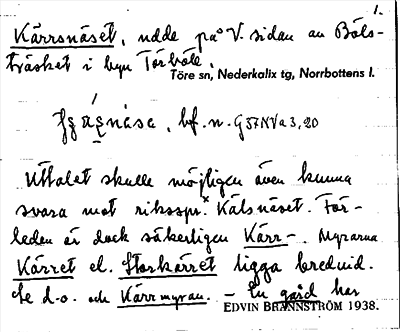 1.
Kärrsnäset, udde på V. sidan av Böls-
träsket i byn Törböle.
Töre sn, Nederkalix tg, Norrbottens l.
bf. n. G57NVa3,20
Uttalet skulle möjligen även kunna
svara mot riksspr. Kälsnäset. För-
leden är dock säkerligen Kärr-. Myrarna
Kärret el. Storkärret ligga bredvid.
Se d.o. och Kärrmyran. – En gård har
EDVIN BRÄNNSTRÖM 1938.